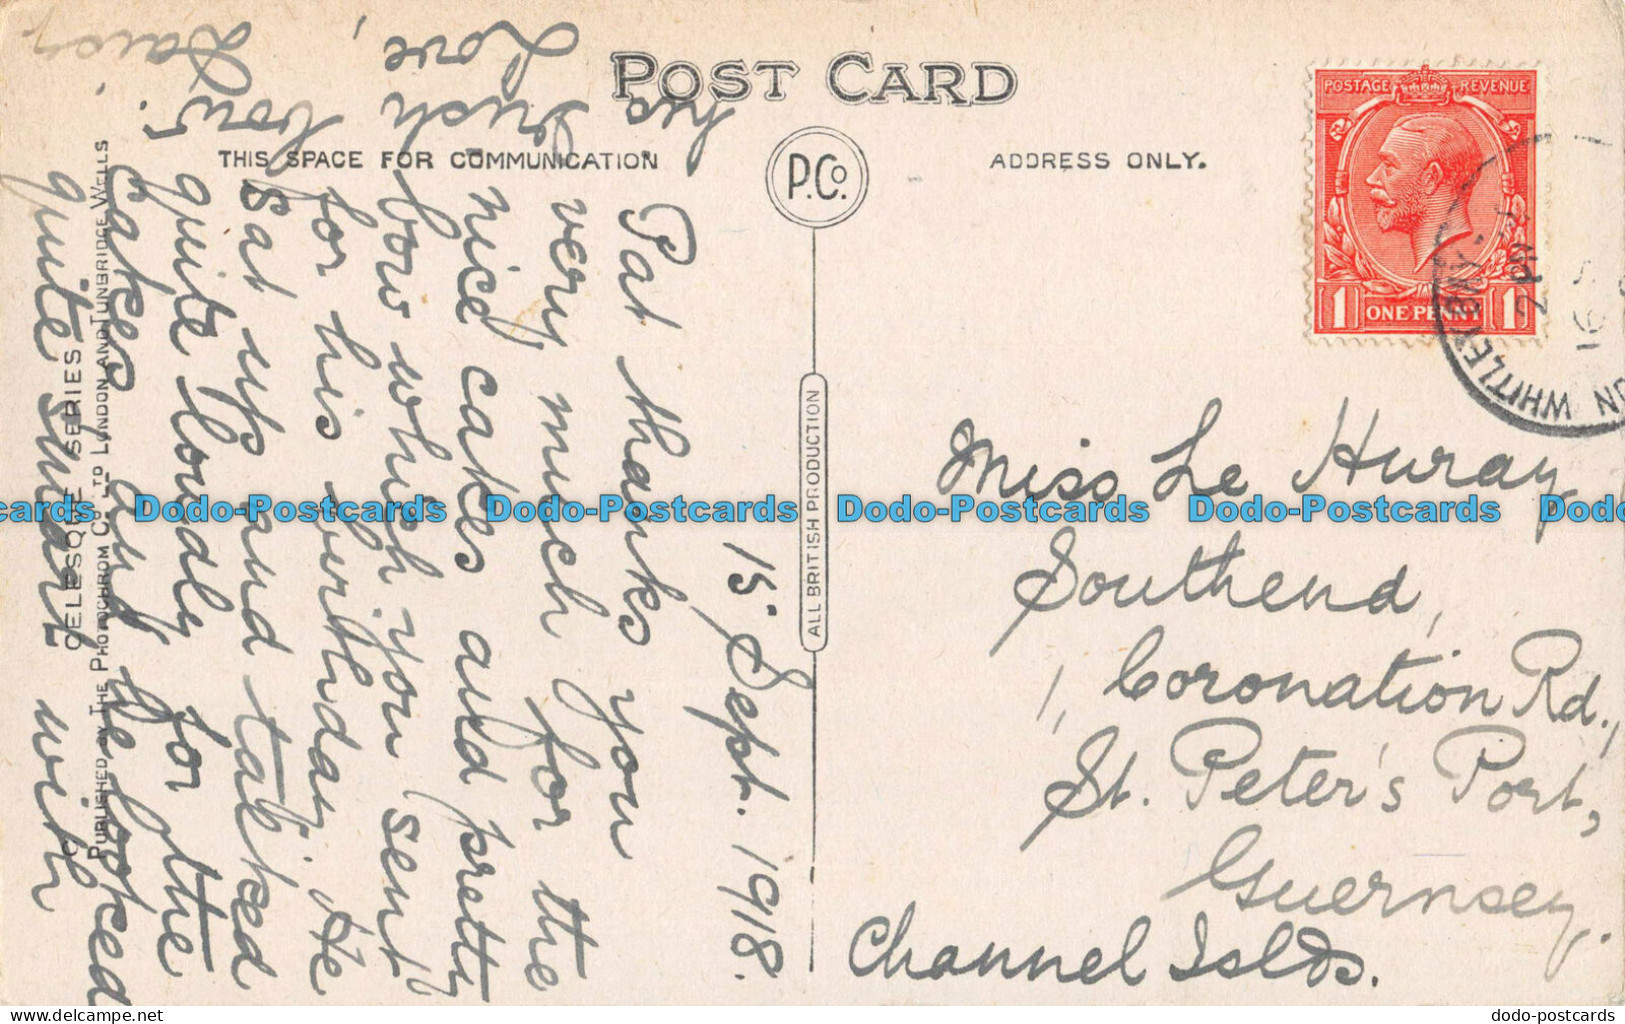 POST CARD
THIS SPACE FOR COMMUNICATION.
ADDRESS ONLY.
P.Co.
ALL BRITISH PRODUCTION
POSTAGE REVENUE
1 ONE PENNY 1
WHITLEY BAY
CELESQUE SERIES
PUBLISHED BY THE PHOTOCHROM CO. LTD LONDON AND TUNBRIDGE WELLS
15 Sept. 1918.
Pat thanks you
very much for the
nice cakes and pretty
bow which you sent
for his birthday. He
sat up and talked
quite loudly for the
cakes and he looked
quite smart with
his
bow.
Love,
Daisy.
Miss Le Huray
Southend,
1, Coronation Rd.,
St. Peter's Port,
Guernsey.
Channel Islds.
Dodo-Postcards Dodo-Postcards Dodo-Postcards Dodo-Postcards Dodo
dodo-postcards